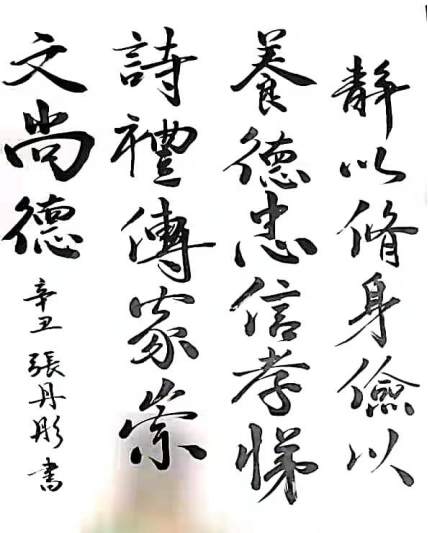 靜以脩身儉以
養德忠信孝悌
詩禮傳家崇
文尚德
辛丑 張丹彤書